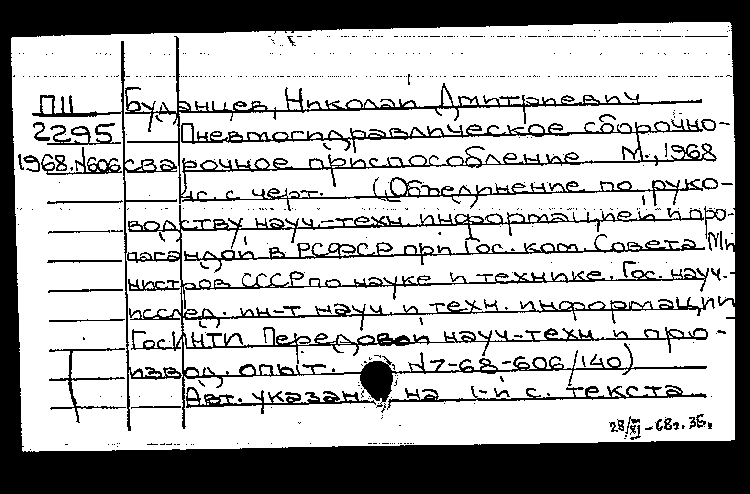 П11 Буданцев, Николай Дмитриевич
2295 Пневмогидравлическое сборочно-
1968.N606 сварочное приспособление М., 1968
4с. с черт. (Объединение по руко-
водству науч.-техн. информацией и про-
пагандой в РСФСР при Гос. ком. Совета Ми
нистров СССР по науке и технике. Гос. науч.-
исслед. ин-т науч. и техн. информации
ГосИНТИ Передовой науч-техн. и про-
извод. опыт. N7-68-606/140)
Авт. указан на 1-й с. текста
28/XI-68г. 36.